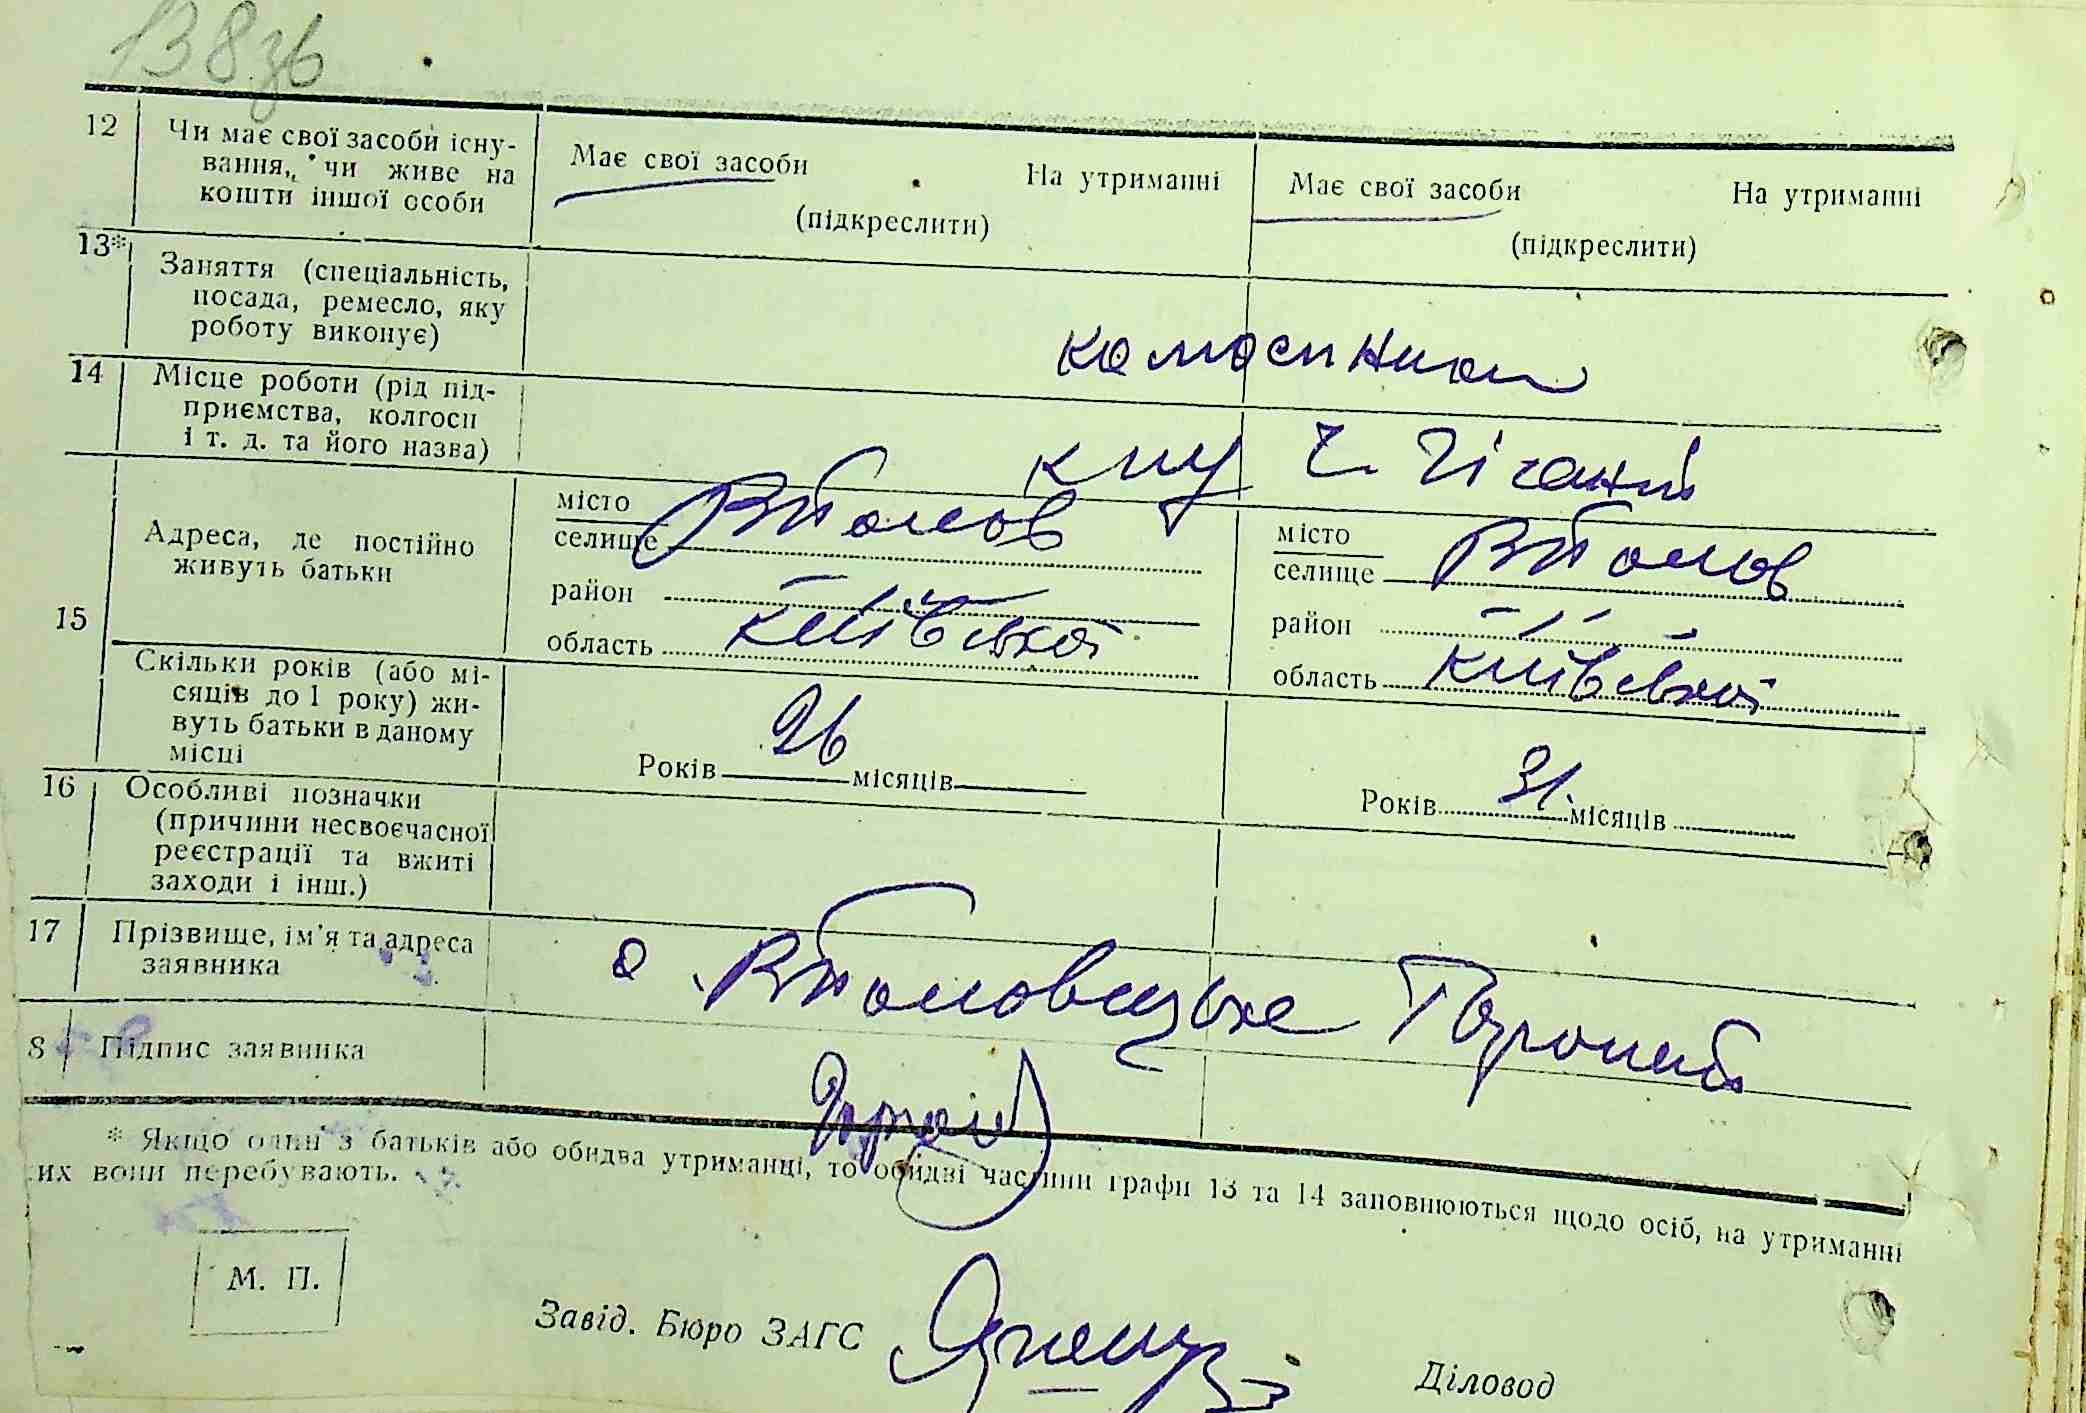 138зв
12 Чи має свої засоби існу-
вання, чи живе на
кошти іншої особи
Має свої засоби На утриманні
(підкреслити)
Має свої засоби На утриманні
(підкреслити)
13* Заняття (спеціальність,
посада, ремесло, яку
роботу виконує)
14 Місце роботи (рід під-
приємства, колгосп
і т. д. та його назва)
15 Адреса, де постійно
живуть батьки
місто
селище
район
область Київської
місто
селище
район
область Київської
Скільки років (або мі-
сяців до 1 року) жи-
вуть батьки в даному
місці
Років 26 місяців
Років 31 місяців
16 Особливі позначки
(причини несвоєчасної
реєстрації та вжиті
заходи і інш.)
17 Прізвище, ім'я та адреса
заявника
8 Підпис заявника
* Якщо один з батьків або обидва утриманці, то обидві частини графи 13 та 14 заповнюються щодо осіб, на утриманні
их вони перебувають.
М. П.
Завід. Бюро ЗАГС
Діловод